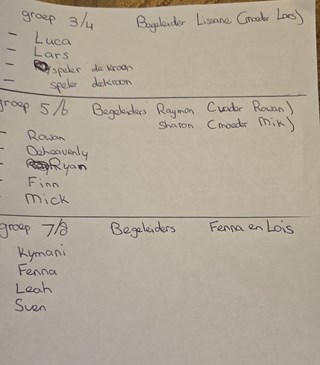 groep 3/4 Begeleider Lisanne (moeder Lars)
- Luca
- Lars
- speler de kroon
- speler dekroon
groep 5/6 Begeleiders Raymon (vader Rowan)
Sharon (moeder Mik)
- Rowan
- Deheavenly
- Ryan
- Finn
- Mick
groep 7/8 Begeleiders Fenna en Lois
Kymani
Fenna
Leah
Sven